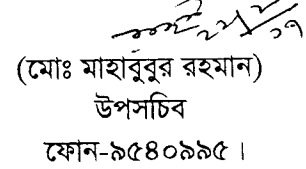 ২২/২/১৭
(মোঃ মাহাবুবুর রহমান)
উপসচিব
ফোন-৯৫৪০৯৯৫।